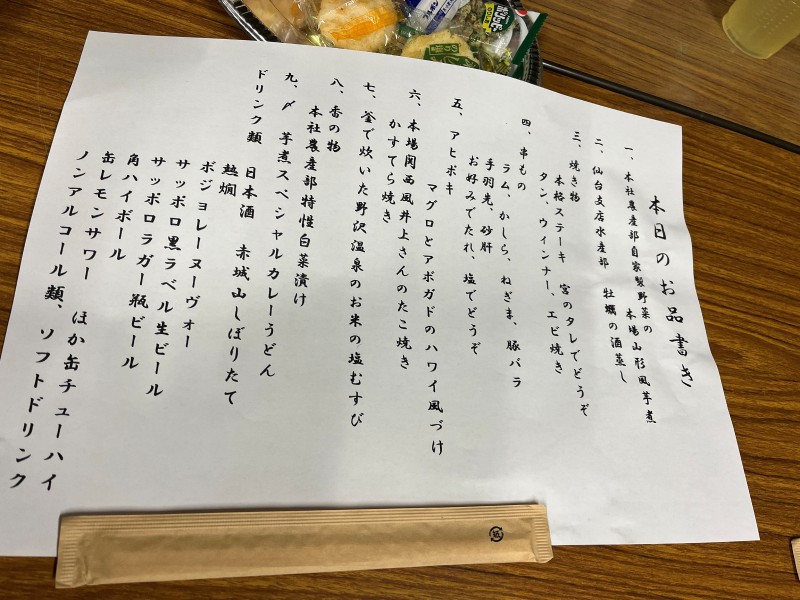 本日のお品書き
一、本社農産部自家製野菜の
本場山形風芋煮
二、仙台支店水産部 牡蠣の酒蒸し
三、焼き物
本格ステーキ 宮のタレでどうぞ
タン、ウィンナー、エビ焼き
四、串もの
ラム、かしら、ねぎま、豚バラ
手羽先、砂肝
お好みでたれ、塩でどうぞ
五、アヒポキ
マグロとアボガドのハワイ風づけ
六、本場関西風井上さんのたこ焼き
かすてら焼き
七、釜で炊いた野沢温泉のお米の塩むすび
八、香の物
本社農産部特性白菜漬け
九、〆 芋煮スペシャルカレーうどん
ドリンク類 日本酒 赤城山しぼりたて
熱燗
ボジョレーヌーヴォー
サッポロ黒ラベル生ビール
サッポロラガー瓶ビール
角ハイボール
缶レモンサワー ほか缶チューハイ
ノンアルコール類、ソフトドリンク
紙